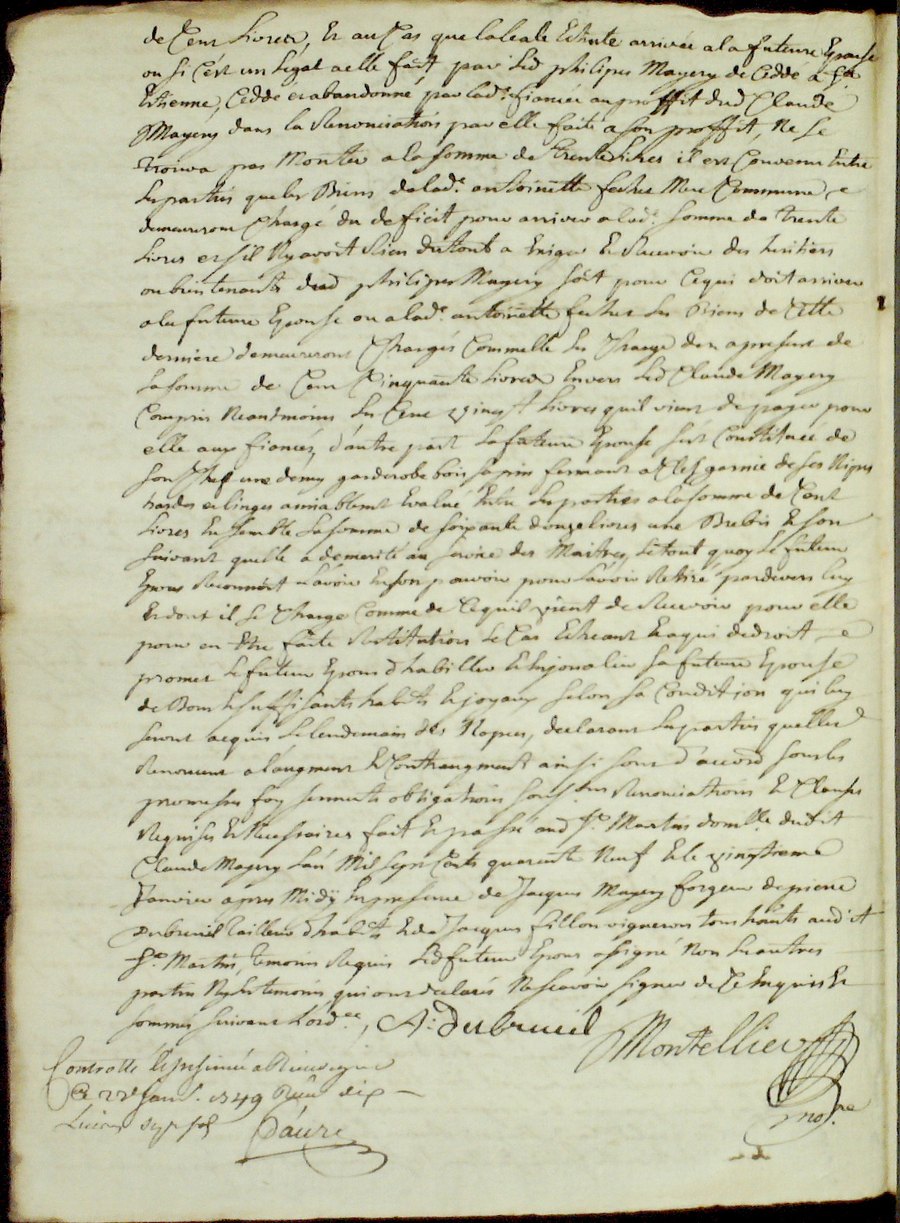 de Cent Livres, Et au Cas que la leale Echute arrivée a la future Epouse
ou si C'ést un Legat a elle fait par Led philipes Mayery de Ceddé a St
Etienne, Cedde et abandonne par lad.e fiancée au proffit dud Claude
Mayery dans la Renonciation par elle faite a son proffit, Ne se
trouva pas Monter a la somme de trente Livres il est Convenu Entre
Les parties que les Biens de lad.e antoinette fechet Mere Commune
demeureront Chargé du deficit pour arriver a lad.e somme de trente
Livres et s'il Ny avoit Rien du tout a Exiger Et Recevoir des heritiers
ou bien tenants dud philipes Mayery soit pour Ce qui doit arriver
a la future Epouse ou a lad.e antoinette fechet Les Biens de Cette
derniere demeureront Chargés Comme elle Les Charge des a present de
La somme de Cent Cinquante Livres Envers Led Claude Mayery
Compris Neantmoins Les Cent vingt Livres quil vient de payer pour
elle aux fiancés, d'autre part La future Epouse s'est Constituée de
son Chef une demy garderobe bois sapin fermant a Clef garnie de ses Nipes
hardes et linges amiablement Evalué Entre Les parties a la somme de Cent
Livres Ensemble La somme de soixante douze livres une Brebis Et son
suivant quelle a demerité au service des Maitres, Le tout quoy Le futeur
Epoux Reconnoit avoir En son pouvoir pour L'avoir Retiré pardevers luy
Et dont il se Charge Comme de Ce quil vient de Recevoir pour elle
pour en Etre faite Restitution Le Cas Echeant Et a qui de droit
promet Le futeur Epoux d'habiller Et Enjoualier sa future Epouse
de Bons Et suffisants habits Et joyaux selon sa Condition qui luy
seront acquis Le lendemain des Nopces, declarant Les parties quelles
Renoncent a l'augment Et Contraugment ainsi sont d'accord sous les
promesses foy serments obligations sous.ons Renonciations Et Clauses
Requises Et Necessaires fait Et passé aud St Martin domlle dudit
Claude Mayery L'an Mil sept Cents quarante Neuf Et le vingtieme
Janvier apres Midÿ En presence de Jacques Mayery forgeur de pierre
Dubreuil tailleur d'habits Et de Jacques fillon vigneron tous hãnts audit
St Martin, temoins Requis Led futeur Epoux a signé Non Les autres
parties Ny les temoins qui ont declarés Ne scavoir signer de Ce Enquis Et
sommés suivant L'ord.ce, A: Dubreuil
Montellier
no.re
Controllé Et Insinué a
Ce 22e Janv. 1749 Reçu dix
Livres sept sols
Daurre